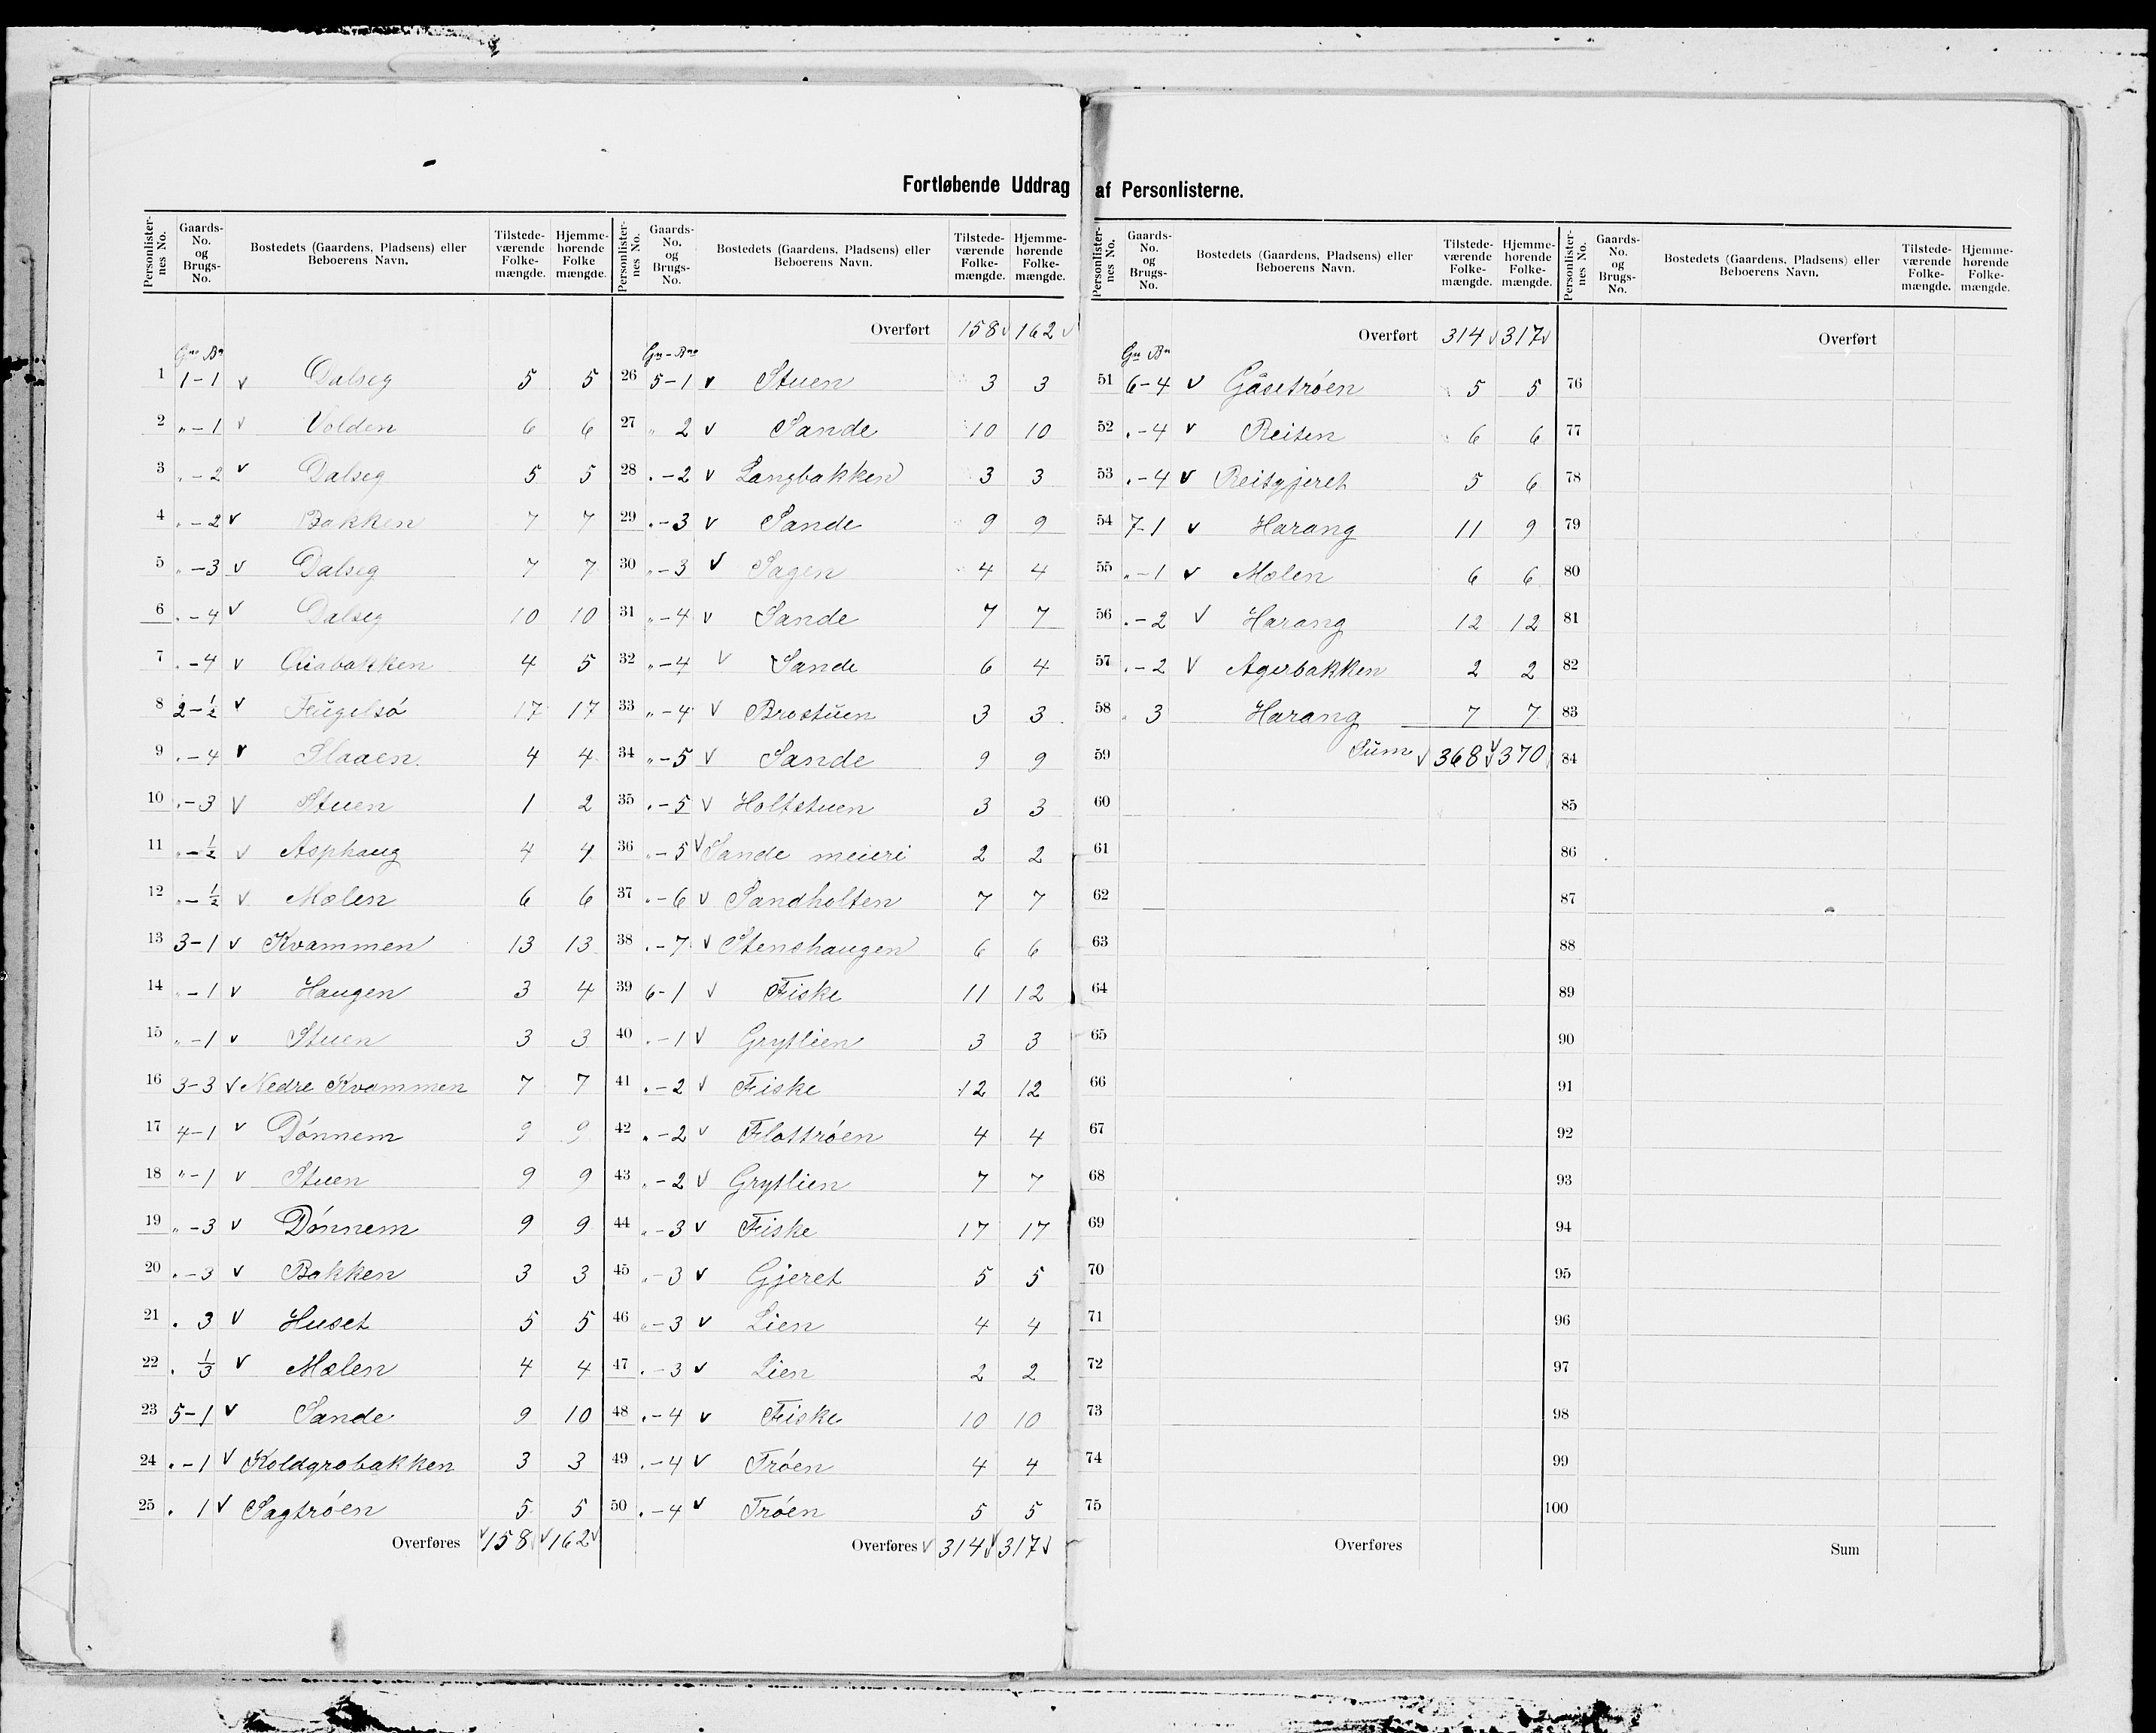 Fortløbende Uddrag af Personlisterne.
Personlisternes No. Gaards-No. og Brugs-No. Bostedets (Gaardens, Pladsens) eller Beboerens Navn. Tilstedeværende Folkemængde. Hjemmehørende Folkemængde.
Gno Bn
1 1-1 v Dalseg 5 5
2 „-1 v Volden 6 6
3 „-2 v Dalseg 5 5
4 „-2 v Bakken 7 7
5 „-3 v Dalseg 7 7
6 „-4 v Dalseg 10 10
7 „-4 v 4 5
8 2-½ v Fŭgelsö 17 17
9 „-4 v Slaaen 4 4
10 „-3 v Stuen 1 2
11 „-½ v Asphaug 4 4
12 „-½ v Molen 6 6
13 3-1 v Kvammen 13 13
14 „-1 v Haugen 3 4
15 „-1 v Stuen 3 3
16 3-3 v Nedre Kvammen 7 7
17 4-1 v Dönnem 9 9
18 „-1 v Stuen 9 9
19 „-3 v Dönnem 9 9
20 „-3 v Bakken 3 3
21 „ 3 v Huset 5 5
22 „ ⅓ v Molen 4 4
23 5-1 v Sande 9 10
24 „-1 v Koldgrobakken 3 3
25 „ 1 v Sagtröen 5 5
Overføres v 158 v 162 v
Personlisternes No. Gaards-No. og Brugs-No. Bostedets (Gaardens, Pladsens) eller Beboerens Navn. Tilstedeværende Folkemængde. Hjemmehørende Folkemængde.
Overført 158 v 162 v
Gn-Bno
26 5-1 v Stuen 3 3
27 „ 2 v Sande 10 10
28 „-2 v Langbakken 3 3
29 „-3 v Sande 9 9
30 „-3 v Sagen 4 4
31 „-4 v Sande 7 7
32 „-4 v Sande 6 4
33 „-4 v Brostŭen 3 3
34 „-5 v Sande 9 9
35 „-5 v Holtstuen 3 3
36 „-5 v Sande meieri 2 2
37 „-6 v Sandholten 7 7
38 „-7 v Stenshaugen 6 6
39 6-1 v Fiske 11 12
40 „-1 v Grytlien 3 3
41 „-2 v Fiske 12 12
42 „-2 v Flottröen 4 4
43 „-2 v Grytlien 7 7
44 „-3 v Fiske 17 17
45 „-3 v Gjeret 5 5
46 „-3 v Lien 4 4
47 „-3 v Lien 2 2
48 „-4 v Fiske 10 10
49 „-4 v Tröen 4 4
50 „-4 v Tröen 5 5
Overføres v 314 v 317 v
Personlisternes No. Gaards-No. og Brugs-No. Bostedets (Gaardens, Pladsens) eller Beboerens Navn. Tilstedeværende Folkemængde. Hjemmehørende Folkemængde.
Overført 314 v 317 v
Gn Bn
51 6-4 v Gåsetröen 5 5
52 „-4 v Reiten 6 6
53 „-4 v Reitgjeret 5 6
54 7-1 v Harang 11 9
55 „-1 v Molen 6 6
56 „-2 v Harang 12 12
57 „-2 v Agerbakken 2 2
58 „ 3 Harang 7 7
59 Sŭm v 368 v 370
60
61
62
63
64
65
66
67
68
69
70
71
72
73
74
75
Overføres
Personlisternes No. Gaards-No. og Brugs-No. Bostedets (Gaardens, Pladsens) eller Beboerens Navn. Tilstedeværende Folkemængde. Hjemmehørende Folkemængde.
Overført
76
77
78
79
80
81
82
83
84
85
86
87
88
89
90
91
92
93
94
95
96
97
98
99
100
Sum